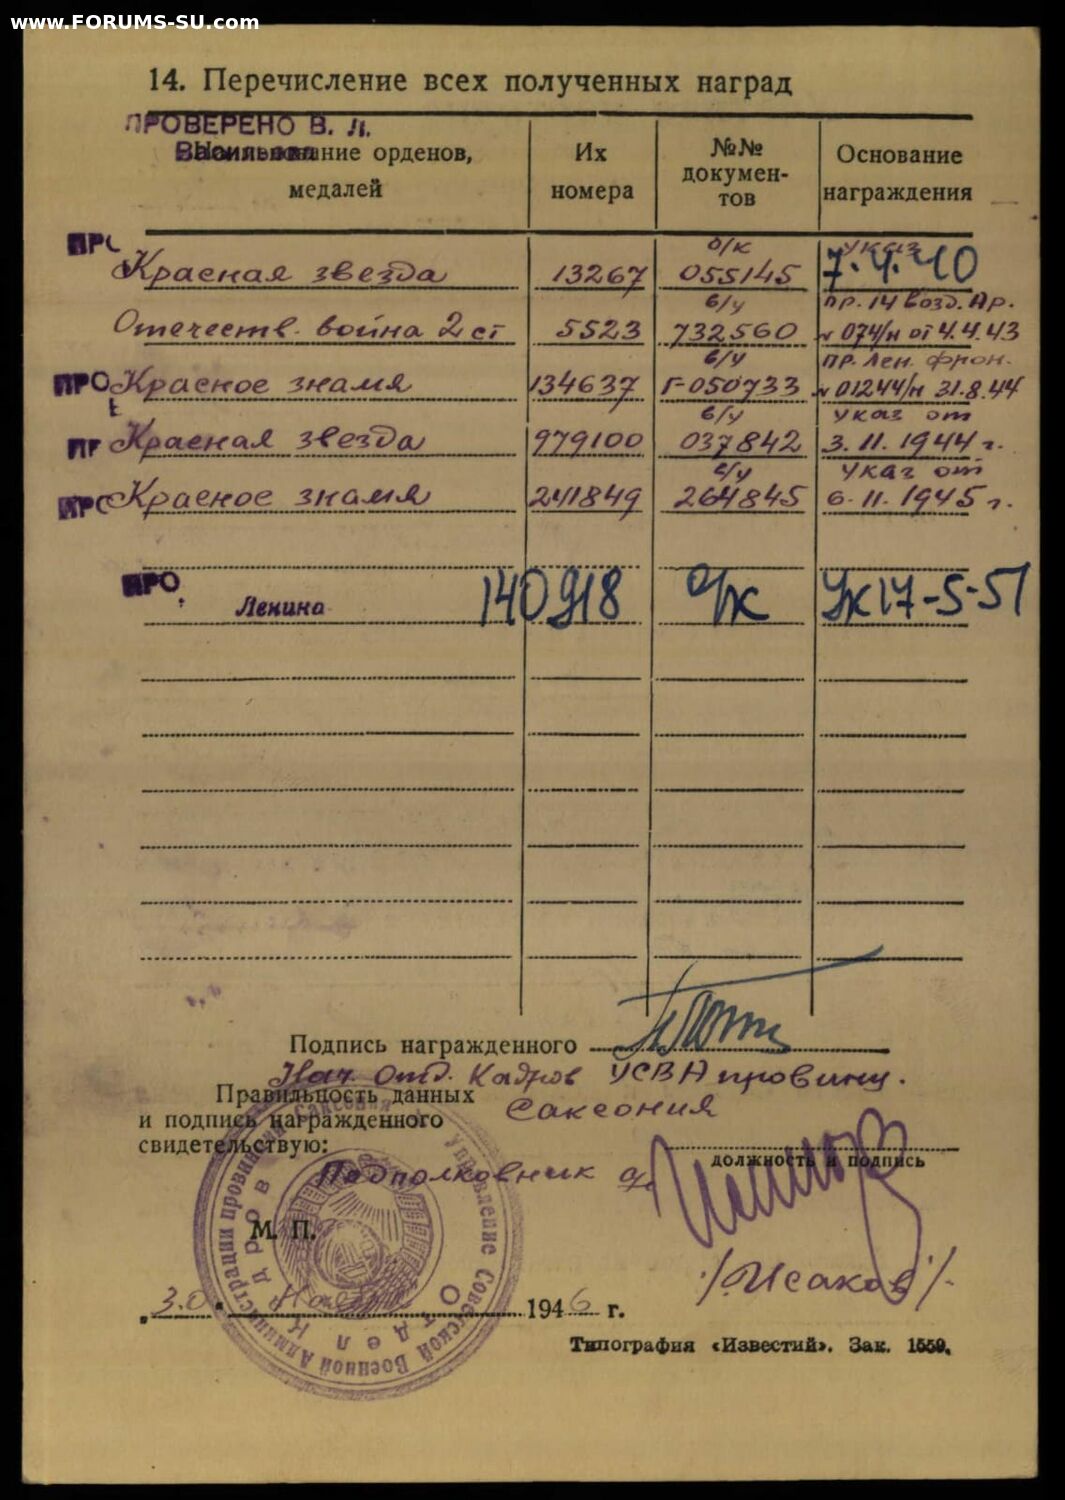 www.FORUMS-SU.com
14. Перечисление всех полученных наград
ПРОВЕРЕНО В. Л.
Наименование орденов, медалей
Их номера
№№ докумен-тов
Основание награждения
ПРО
Красная звезда 13267 о/к 055145 указ 7.4.40
Отечеств. война 2 ст 5523 в/у 732560 пр. 14 возд. Ар. № 074/н от 4.4.43
ПРО Красное знамя 134637 в/у Г-050733 пр. Лен. фрон. № 01244/н 31.8.44
ПР Красная звезда 979100 в/у 037842 указ от 3.11.1944 г.
ПРО Красное знамя 241849 в/у 264845 указ от 6.11.1945 г.
ПРО
Ленина 140918 о/к Ук 17-5-51
Подпись награжденного
Нач. Отд. Кадров УСВА провинц.
Правильность данных
и подпись награжденного
свидетельствую:
Саксония
должность и подпись
Подполковник
М. П.
/Исаков/
30 Ноября 1946 г.
Управление Советской Военной Администрации провинции Саксония
Отдел Кадров
Типография «Известий». Зак. 1559.